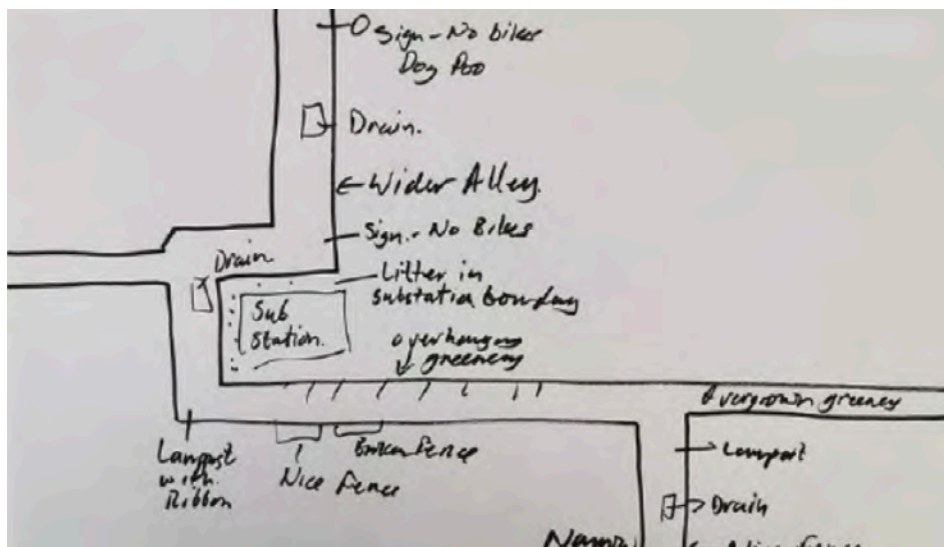 Sign - No bikes
Dog Poo
Drain.
Wider Alley.
Sign. - No Bikes
Drain
Litter in
substation boundary
Sub
Station.
overhanging
greenery
Overgrown greenery
Lampost
with
Ribbon
Nice Fence
Broken Fence
Lampost
Drain